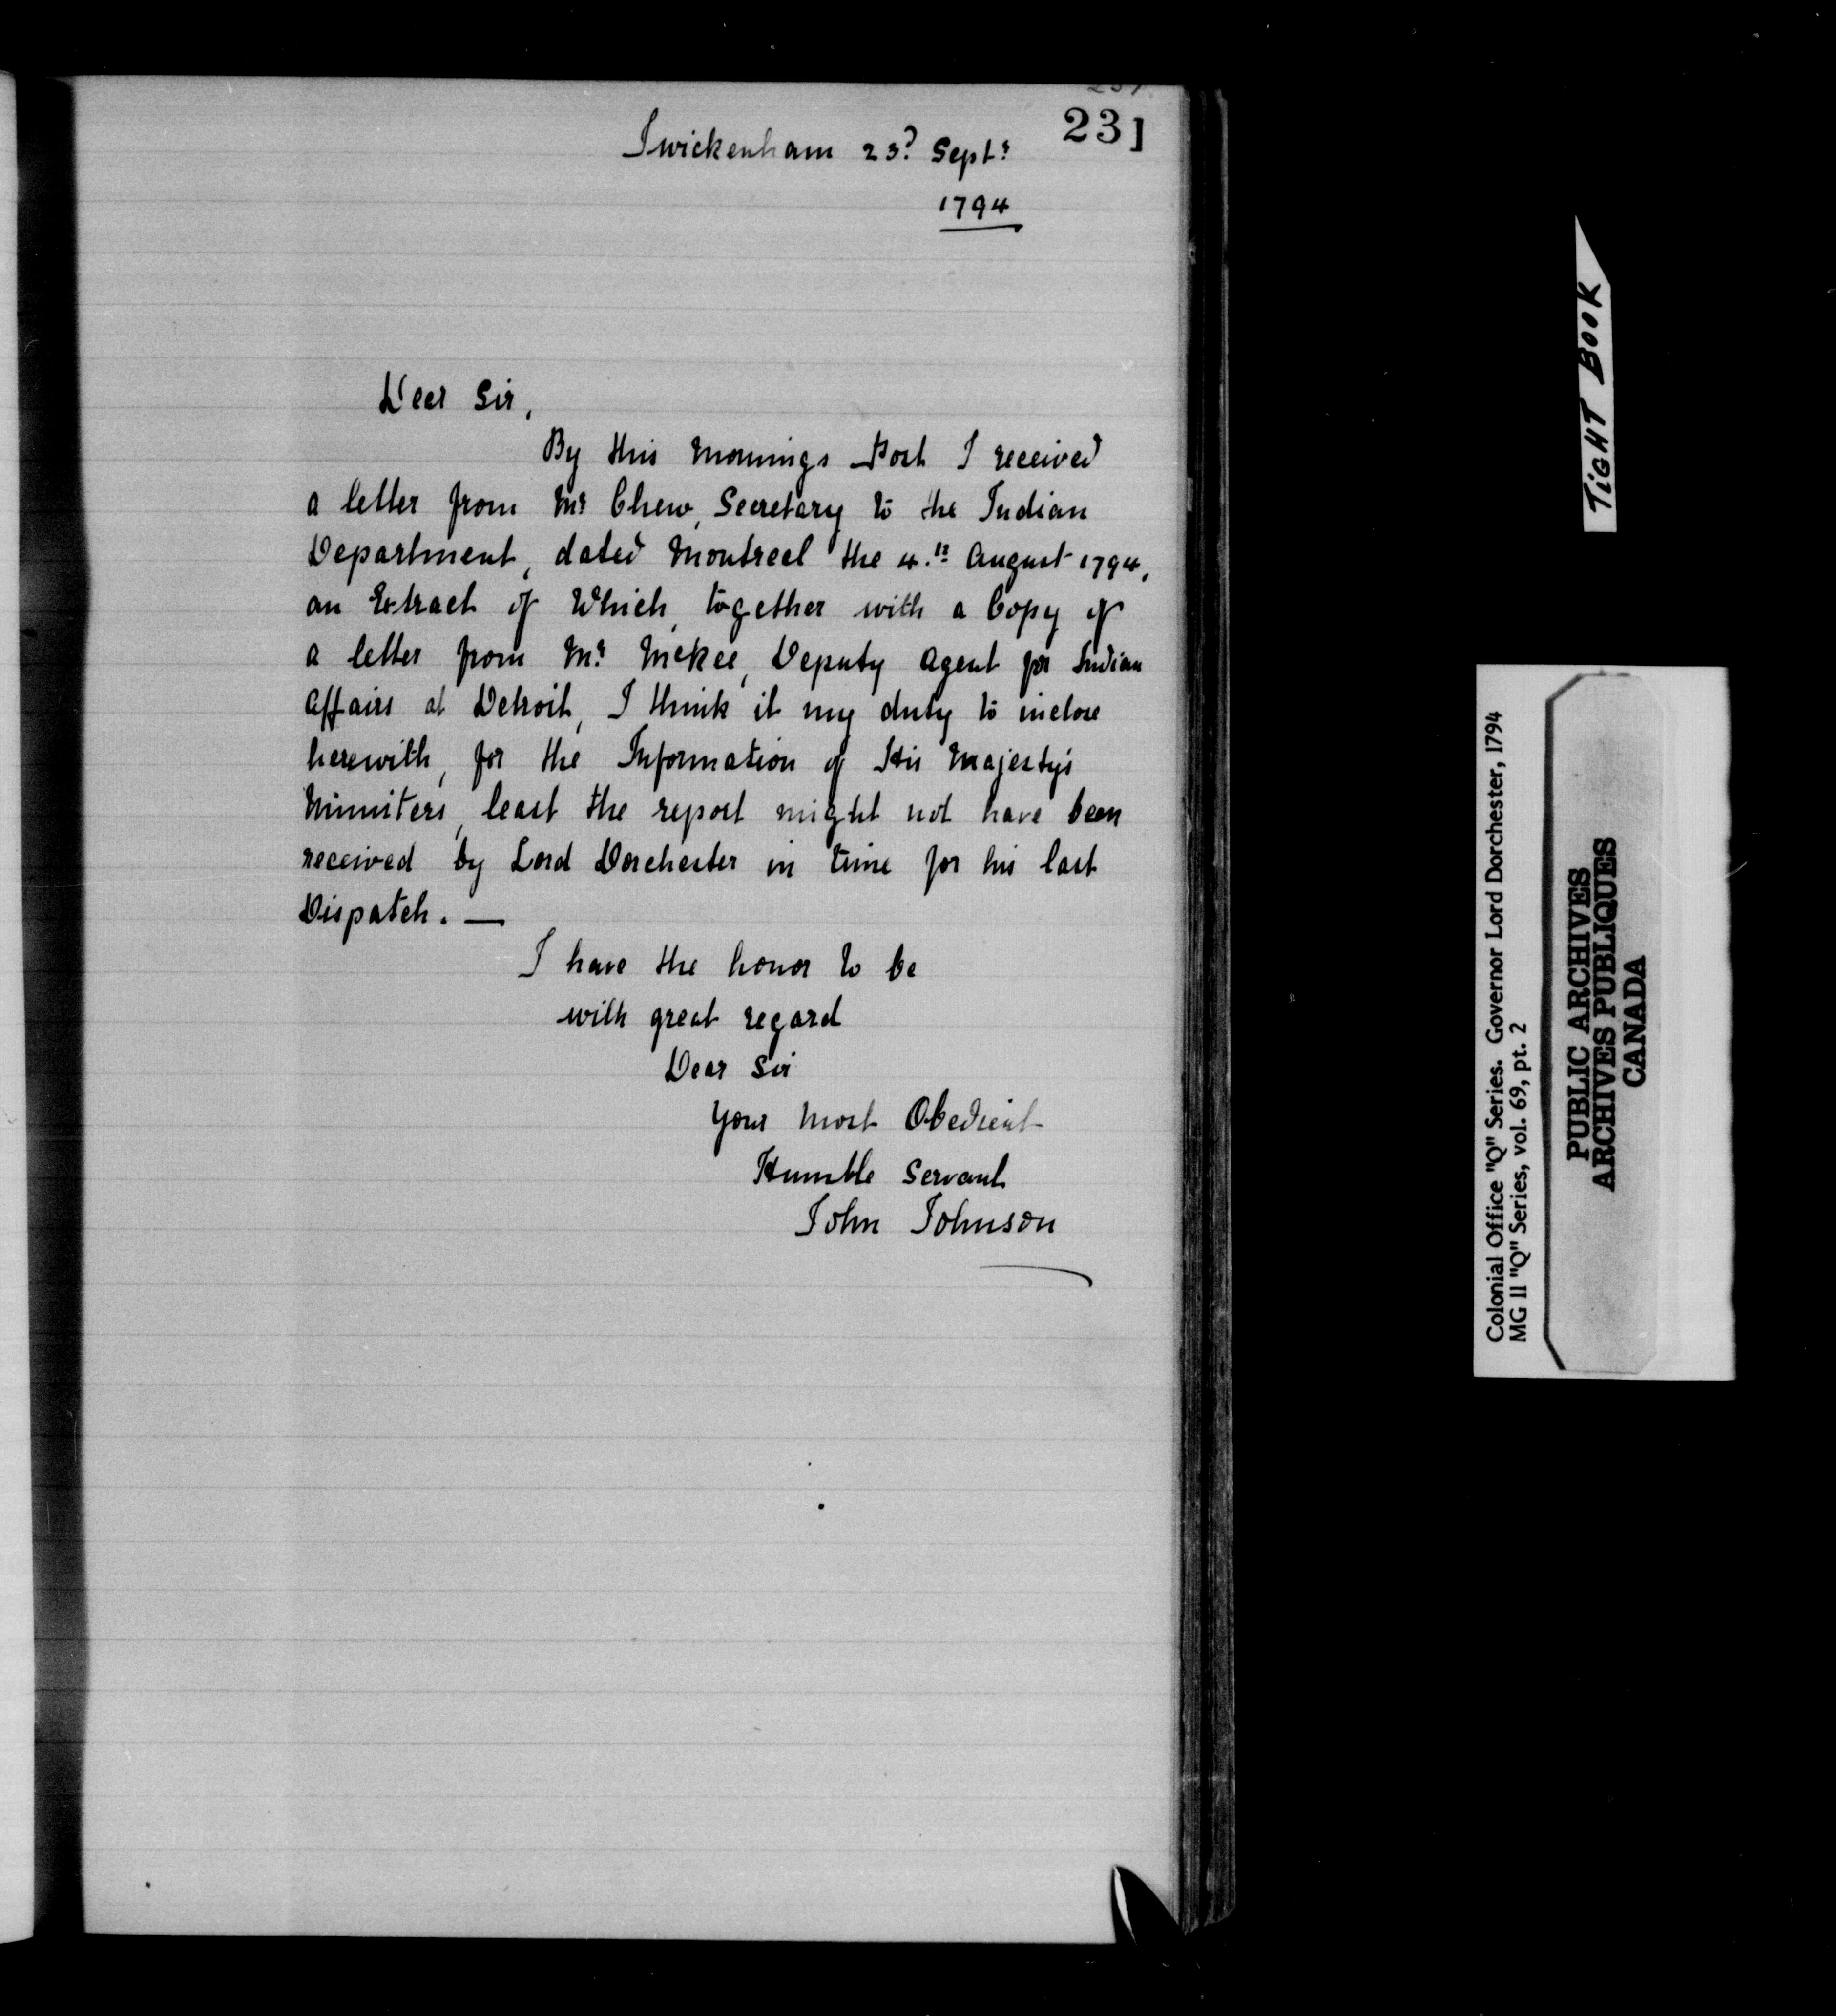 231
Twickenham 23d Septr
1794
Dear Sir,
By this Mornings Post I received
a letter from Mr Chew, Secretary to the Indian
Department, dated Montreal the 4.th August 1794,
an Extract of Which, together with a Copy of
a letter from Mr McKee, Deputy Agent for Indian
Affairs at Detroit, I think it my duty to inclose
herewith, for the Information of His Majesty's
Ministers, least the report might not have been
received by Lord Dorchester in time for his last
Dispatch. —
I have the honor to be
with great regard
Dear Sir
Your Most Obedient
Humble Servant
John Johnson
TIGHT BOOK
Colonial Office "Q" Series. Governor Lord Dorchester, 1794
MG 11 "Q" Series, vol. 69, pt. 2
PUBLIC ARCHIVES
ARCHIVES PUBLIQUES
CANADA